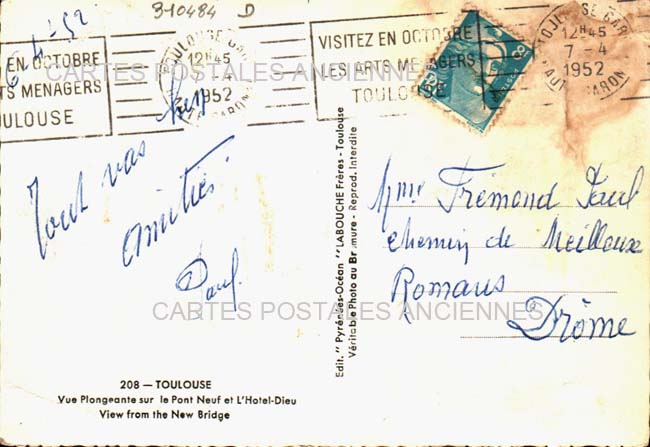 3-10484 D
6-4-52
EN OCTOBRE
TS MENAGERS
OULOUSE
TOULOUSE GARE
12H45
7-4
1952
HTE GARONNE
VISITEZ EN OCTOBRE
LES ARTS MENAGERS
TOULOUSE
TOULOUSE GARE
12H45
7-4
1952
CARTES POSTALES ANCIENNES
Tout vas
bien
amitiés.
Paul
Mme Frémond Paul
chemin de Meilloux
Romans
Drôme
CARTES POSTALES ANCIENNES
Edit. "Pyrénées-Océan" LABOUCHE Frères - Toulouse
Véritable Photo au Bromure - Reprod. Interdite
208 — TOULOUSE
Vue Plongeante sur le Pont Neuf et L'Hotel-Dieu
View from the New Bridge